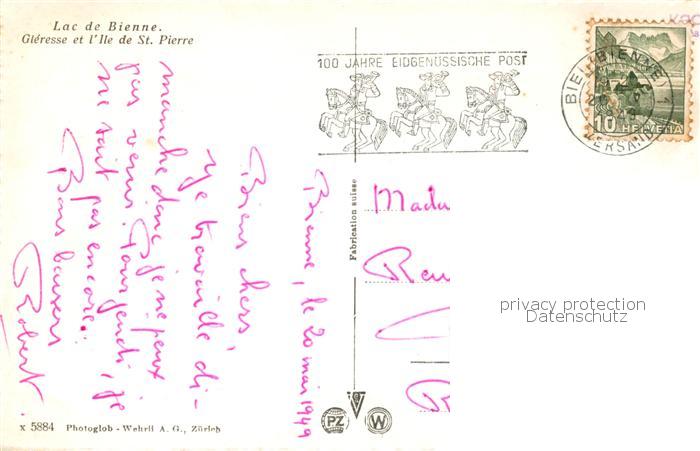 Lac de Bienne.
Gléresse et l'Ile de St. Pierre
100 JAHRE EIDGENÖSSISCHE POST
BIEL BIENNE 1
VERSAND
10 HELVETIA
Bienne, le 20 mai 1949
Biens chers,
Je travaille di-
manche donc je ne peux
pas venir. Pour jeudi, je
ne sait pas encore..
Bons baisers
Robert.
Fabrication suisse
Mada
privacy protection
Datenschutz
x 5884 Photoglob - Wehrli A. G., Zürich
PZ
W